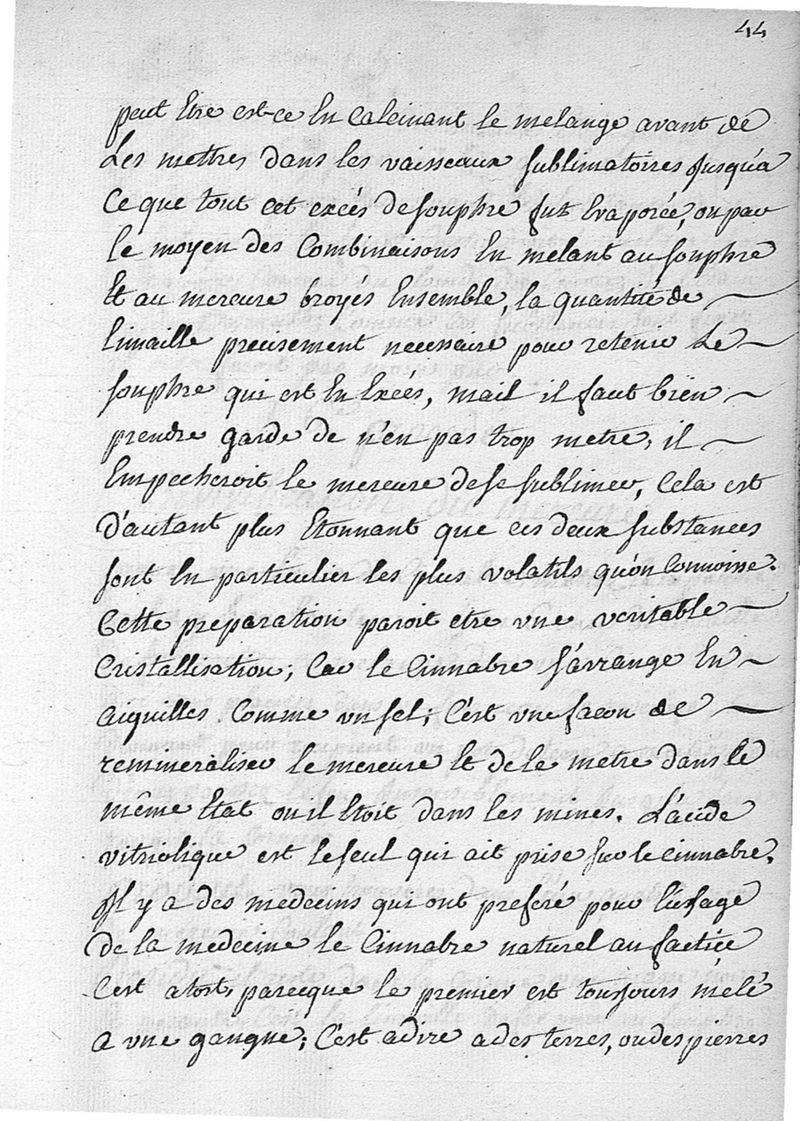 44
peut Etre est-ce En Calcinant le melange avant de
Les mettre dans les vaisseaux sublimatoires Jusqu'a
Ce que tout cet excés de souphre fut Evaporée, ou par
le moyen des Combinaisons En melant au souphre
Et au mercure broyés Ensemble, la quantité de
limaille precisement necessaire pour retenir Le
souphre qui est En Excés, mail il faut bien
prendre garde de n'en pas trop metre, il
Empecheroit le mercure de se sublimer, Cela est
D'autant plus Etonnant que ces deux substances
sont En particulier les plus volatils qu'on Connoisse.
Cette preparation paroit etre vne veritable
Cristallisation; Car le Cinnabre s'arrange En
aiguilles Comme un sel; C'est vne facon de
remineraliser le mercure Et de le metre dans le
même Etat ou il Etoit dans les mines. L'acide
vitriolique est le seul qui ait prise sur le Cinnabre.
Il y a des medecins qui ont preferé pour l'usage
de la medecine le Cinnabre naturel au factice
C'est a tort, parceque le premier est toujours mélé
a vne gangue; C'est a dire a des terres, ou des pierres